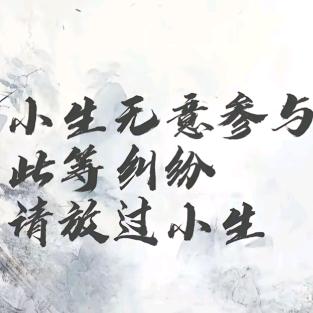 小生无意参与
此等纠纷
请放过小生